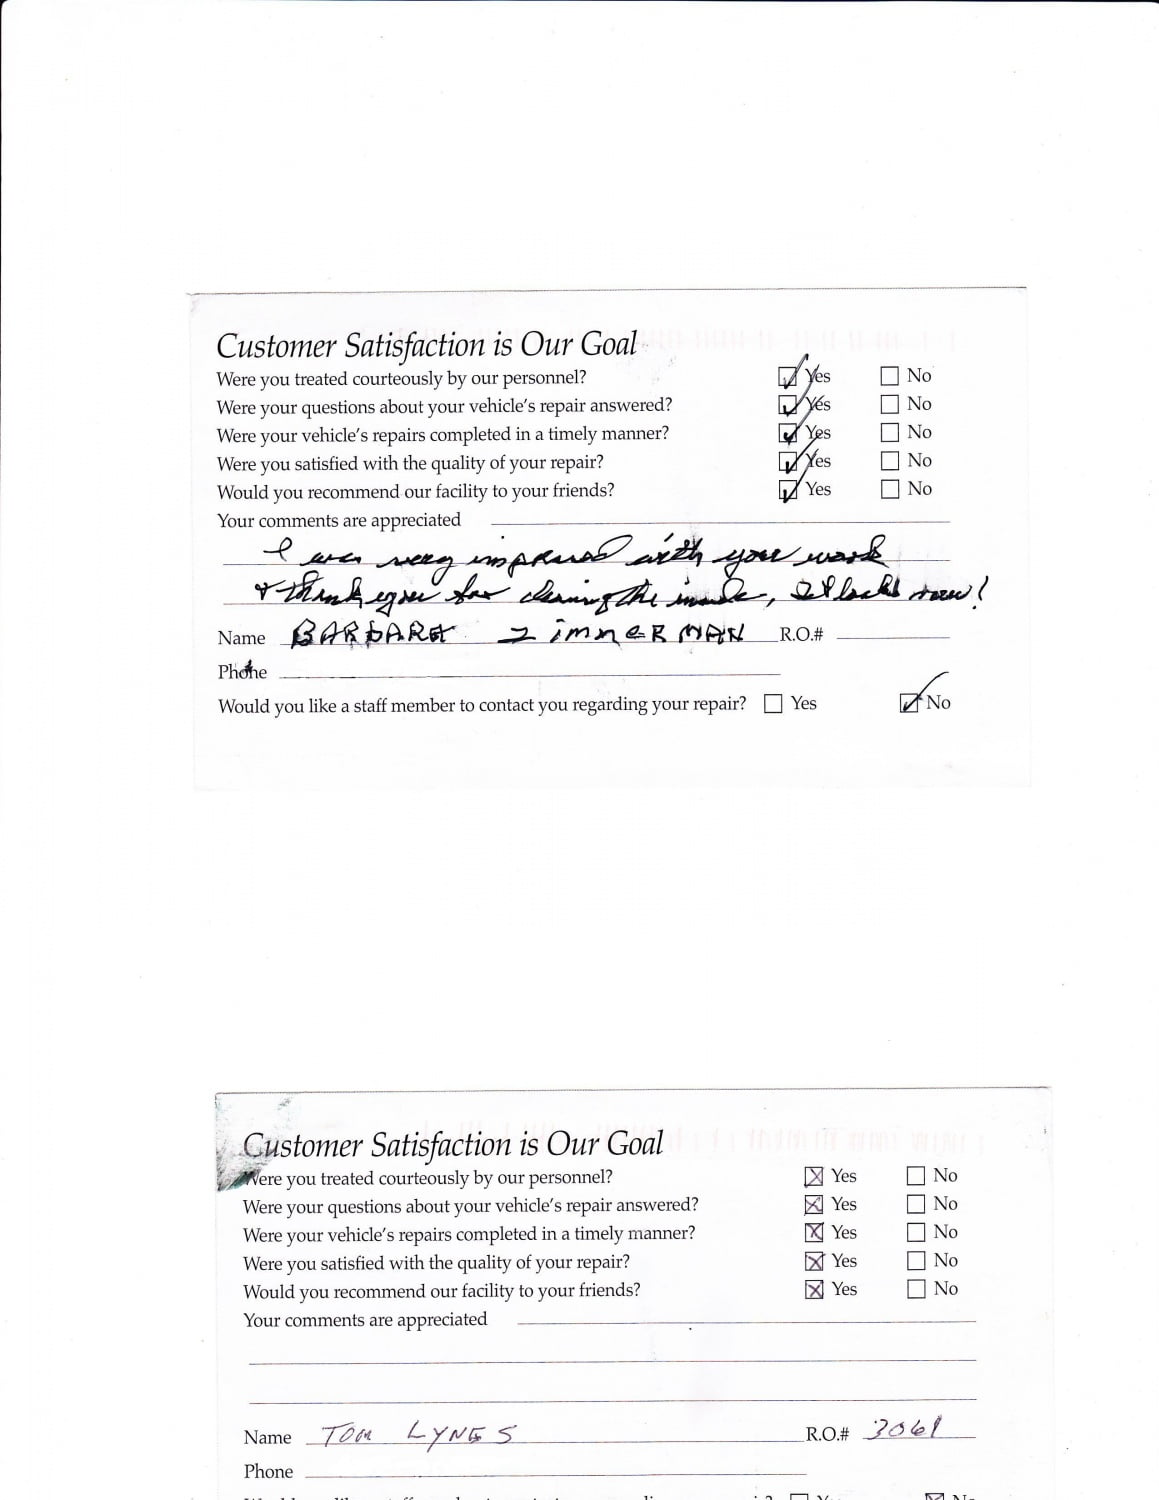 Customer Satisfaction is Our Goal
Were you treated courteously by our personnel? Yes No
Were your questions about your vehicle's repair answered? Yes No
Were your vehicle's repairs completed in a timely manner? Yes No
Were you satisfied with the quality of your repair? Yes No
Would you recommend our facility to your friends? Yes No
Your comments are appreciated
I was very impressed with your work
& thank you for cleaning the inside, It looks new!
Name BARBARA ZimnERMAN R.O.#
Phone
Would you like a staff member to contact you regarding your repair? Yes No
Customer Satisfaction is Our Goal
Were you treated courteously by our personnel? Yes No
Were your questions about your vehicle's repair answered? Yes No
Were your vehicle's repairs completed in a timely manner? Yes No
Were you satisfied with the quality of your repair? Yes No
Would you recommend our facility to your friends? Yes No
Your comments are appreciated
Name TOM LYNES R.O.# 3061
Phone